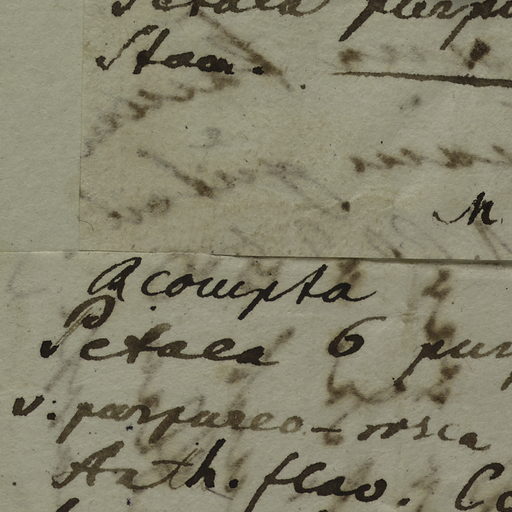 Petala purpu
Stam.
M.
A compta
Petala 6 pur
v. purpureo-rosea
Anth. flav. Co